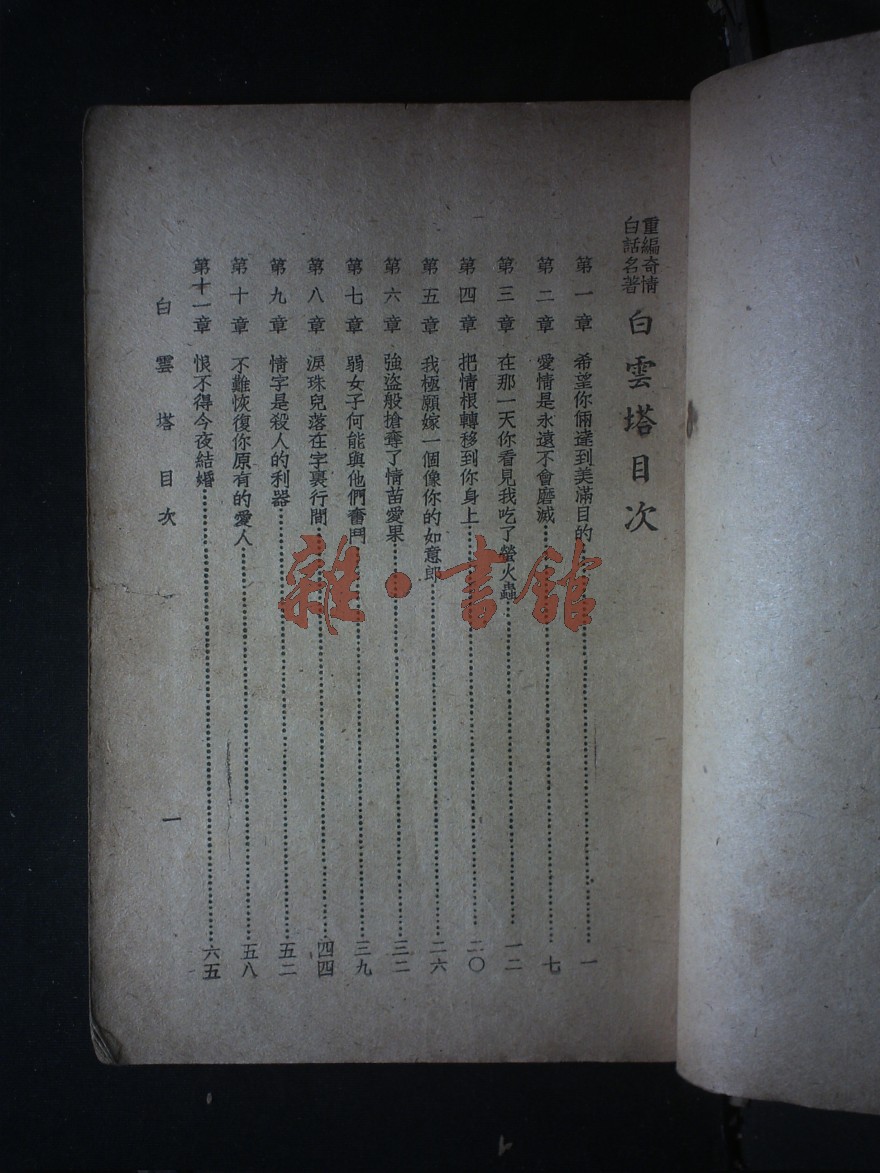 重編奇情
白話名著
白雲塔目次
第一章 希望你倆達到美滿目的……一
第二章 愛情是永遠不會磨滅……七
第三章 在那一天你看見我吃了螢火蟲……一二
第四章 把情根轉移到你身上……二〇
第五章 我極願嫁一個像你的如意郎……二六
第六章 強盜般搶奪了情苗愛果……三二
第七章 弱女子何能與他們奮鬥……三九
第八章 淚珠兒落在字裏行間……四四
第九章 情字是殺人的利器……五二
第十章 不難恢復你原有的愛人……五八
第十一章 恨不得今夜結婚……六五
白雲塔目次 一
雜·書館